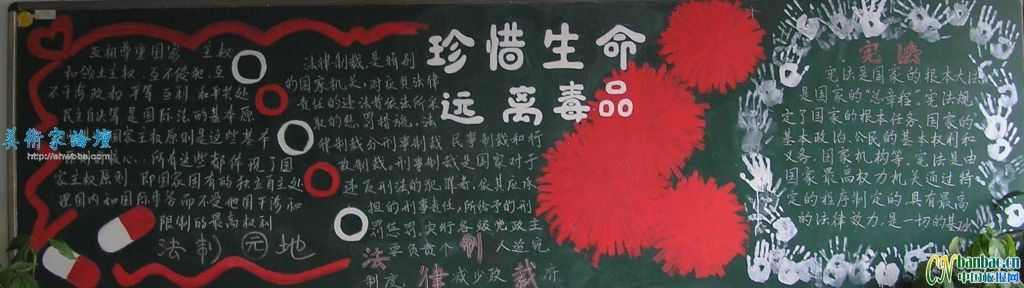 互相尊重国家 主权
和领土主权、互不侵犯、互
不干涉政权 平等互利 和平共处
民主自决等是国际法的基本原
国家主权原则是这些基本
核心、所有这些都体现了国
家主权原则 即国家固有的独立自主处
理国内和国际事务而不受他国干涉和
限制的最高权利
法制园地
法律制裁是特别
的国家机关，对应负法律
责任的违法者依法所采
取的惩罚措施、法
律制裁分刑事制裁 民事制裁和行
政制裁。刑事制裁是国家对于
违反刑法的犯罪者、依其应承
担的刑事责任、所给予的刑
罚惩罚、实行各级党政主
要负责个 人追究
制度 减少及 府
法律制裁
珍惜生命
远离毒品
宪法
宪法是国家的根本大法
是国家的“总章程”。宪法规
定了国家的根本任务、国家的
基本政治、公民的基本权利和
义务、国家机构等。宪法是由
国家最高权力机关通过特
定的程序制定的、具有最高
的法律效力、是一切的基法
美術家論壇
http://ahwbbs.com
CN banbao.cn
中国板报网